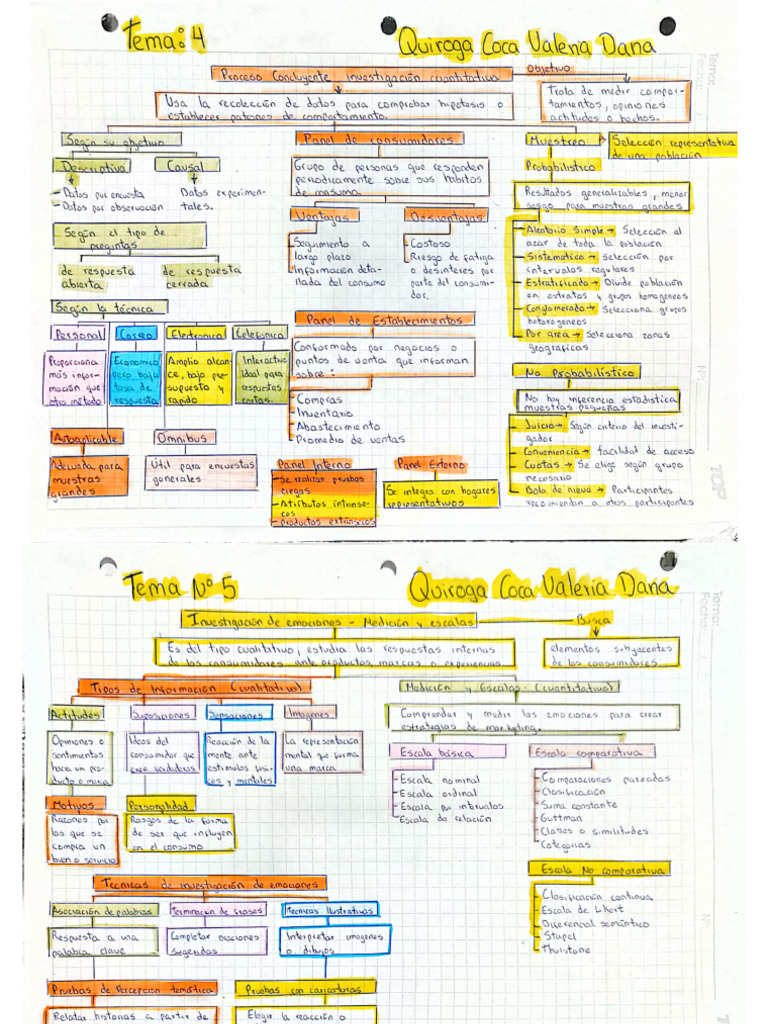 Tema: 4
Quiroga Coca Valeria Dana
Tema:
Fecha:
Proceso Concluyente investigación cuantitativa
Objetivo
Usa la recolección de datos para comprobar hipotesis o
establecer patrones de comportamiento.
Trata de medir compor-
tamientos, opiniones
actitudes o hechos.
Según su objetivo
Descriptiva
Causal
- Datos por encuesta
- Datos por observación
Datos experimen-
tales.
Según el tipo de
preguntas
de respuesta
abierta
de respuesta
cerrada
Según la técnica
Personal
Correo
Electronica
Telefonica
Proporciona
más infor-
mación que
otro método
Economico
pero baja
tasa de
respuesta
Amplio alcan-
ce, bajo pre-
supuesto y
rapido
Interactivo
Ideal para
respuestas
cortas.
Autoaplicable
Omnibus
Adecuada para
muestras
grandes
Útil para encuestas
generales
Panel de consumidores
Grupo de personas que responden
periodicamente sobre sus habitos
de consumo.
Ventajas
Desventajas
Seguimiento a
largo plazo
Información deta-
llada del consumo
Costoso
Riesgo de fatiga
o desinteres por
parte del consumi-
dor.
Panel de Establecimientos
Conformado por negocios o
puntos de venta que informan
sobre:
Compras
Inventario
Abastecimiento
Promedio de ventas
Panel Interno
Panel Externo
- Se realizan pruebas
ciegas
- Atributos intrinse-
cos
- productos extrinsecos
Se integra con hogares
representativos
Muestreo
Selección representativa
de una población
Probabilistico
Resultados generalizables, menor
sesgo para muestras grandes
Aleatorio Simple → Selección al
azar de toda la población
Sistematico → selección por
intervalos regulares
Estratificada → Divide población
en estratos y grupos homogeneos
Conglomerado → Selecciona grupos
heterogeneos
Por area → Selecciona zonas
geograficas
No Probabilístico
No hay inferencia estadistica
muestras pequeñas
Juicio → Según criterio del investi-
gador
Conveniencia → facilidad de acceso
Cuotas → Se elige según grupo
necesario
Bola de nieve → Participantes
recomiendan a otros participantes
Nº:
TOP
Tema Nº 5
Quiroga Coca Valeria Dana
Tema:
Fecha:
Investigación de emociones - Medición y escalas
Busca
Es del tipo cualitativo, estudia las respuestas internas
de los consumidores ante productos, marcas o experiencias
elementos subyacentes
de los consumidores
Tipos de Información (cualitativo)
Actitudes
Suposiciones
Sensaciones
Imagenes
Opiniones o
sentimientos
hacia un pro-
ducto o marca
Ideas del
consumidor que
cree verdaderas
Reacción de la
mente ante
estimulos físi-
cos y mentales
La representación
mental que forma
una marca
Motivos
Personalidad
Razones por
las que se
compra un
bien o servicio
Rasgos de la forma
de ser que influyen
en el consumo
Medición y Escalas (cuantitativo)
Comprender y medir las emociones para crear
estrategias de marketing.
Escala básica
Escala comparativa
Escala nominal
Escala ordinal
Escala por intervalos
Escala de relación
Comparaciones pareadas
Clasificación
Suma constante
Guttman
Clases o similitudes
Categorias
Escala No comparativa
Clasificación continua
Escala de Likert
Diferencial semántico
Stapel
Thurstone
Tecnicas de investigación de emociones
Asociación de palabras
Terminación de frases
Tecnicas Ilustrativas
Respuesta a una
palabra clave
Completar oraciones
sugeridas
Interpretar imagenes
o dibujos
Pruebas de Percepción temática
Pruebas con caricaturas
Relatar historias a partir de
Elegir la reacción o
Nº: